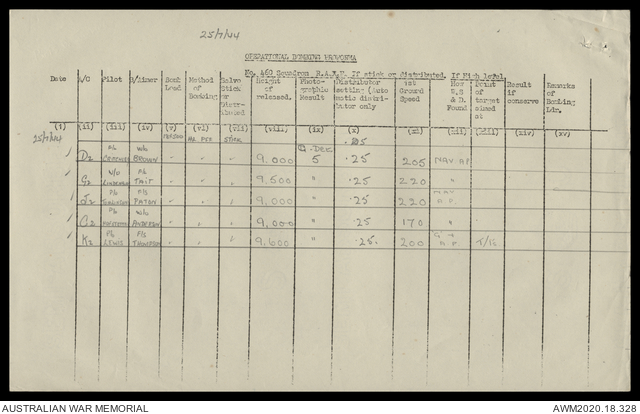 25/7/44
OPERATIONAL BOMBING PROFORMA
No. 460 Squadron R.A.A.F. If stick or distributed. If High level
Date A/C Pilot B/Aimer Bomb Load Method of Bombing Salvo Stick or Distributed Height of released. Photographic Result Distributor setting (Automatic distributor only Ground Speed How W.S & D. Found Point of target aimed at Result if conserve Remarks of Bombing Ldr.
(i) (ii) (iii) (iv) (v) (vi) (vii) (viii) (ix) (x) (xi) (xii) (xiii) (xiv) (xv)
25/7/44 STICK .25
D2 BROWN 9,000 5 .25 205 NAV. A.P.
G2 W/O TAIT 9,500 " .25 220 "
J2 F/S PATON 9,000 " .25 220 NAV A.P.
C2 W/O ANDERSON 9,000 " .25 170 "
K2 LEWIS F/S THOMPSON 9,600 " .25 200 T/I's
AUSTRALIAN WAR MEMORIAL
AWM2020.18.328